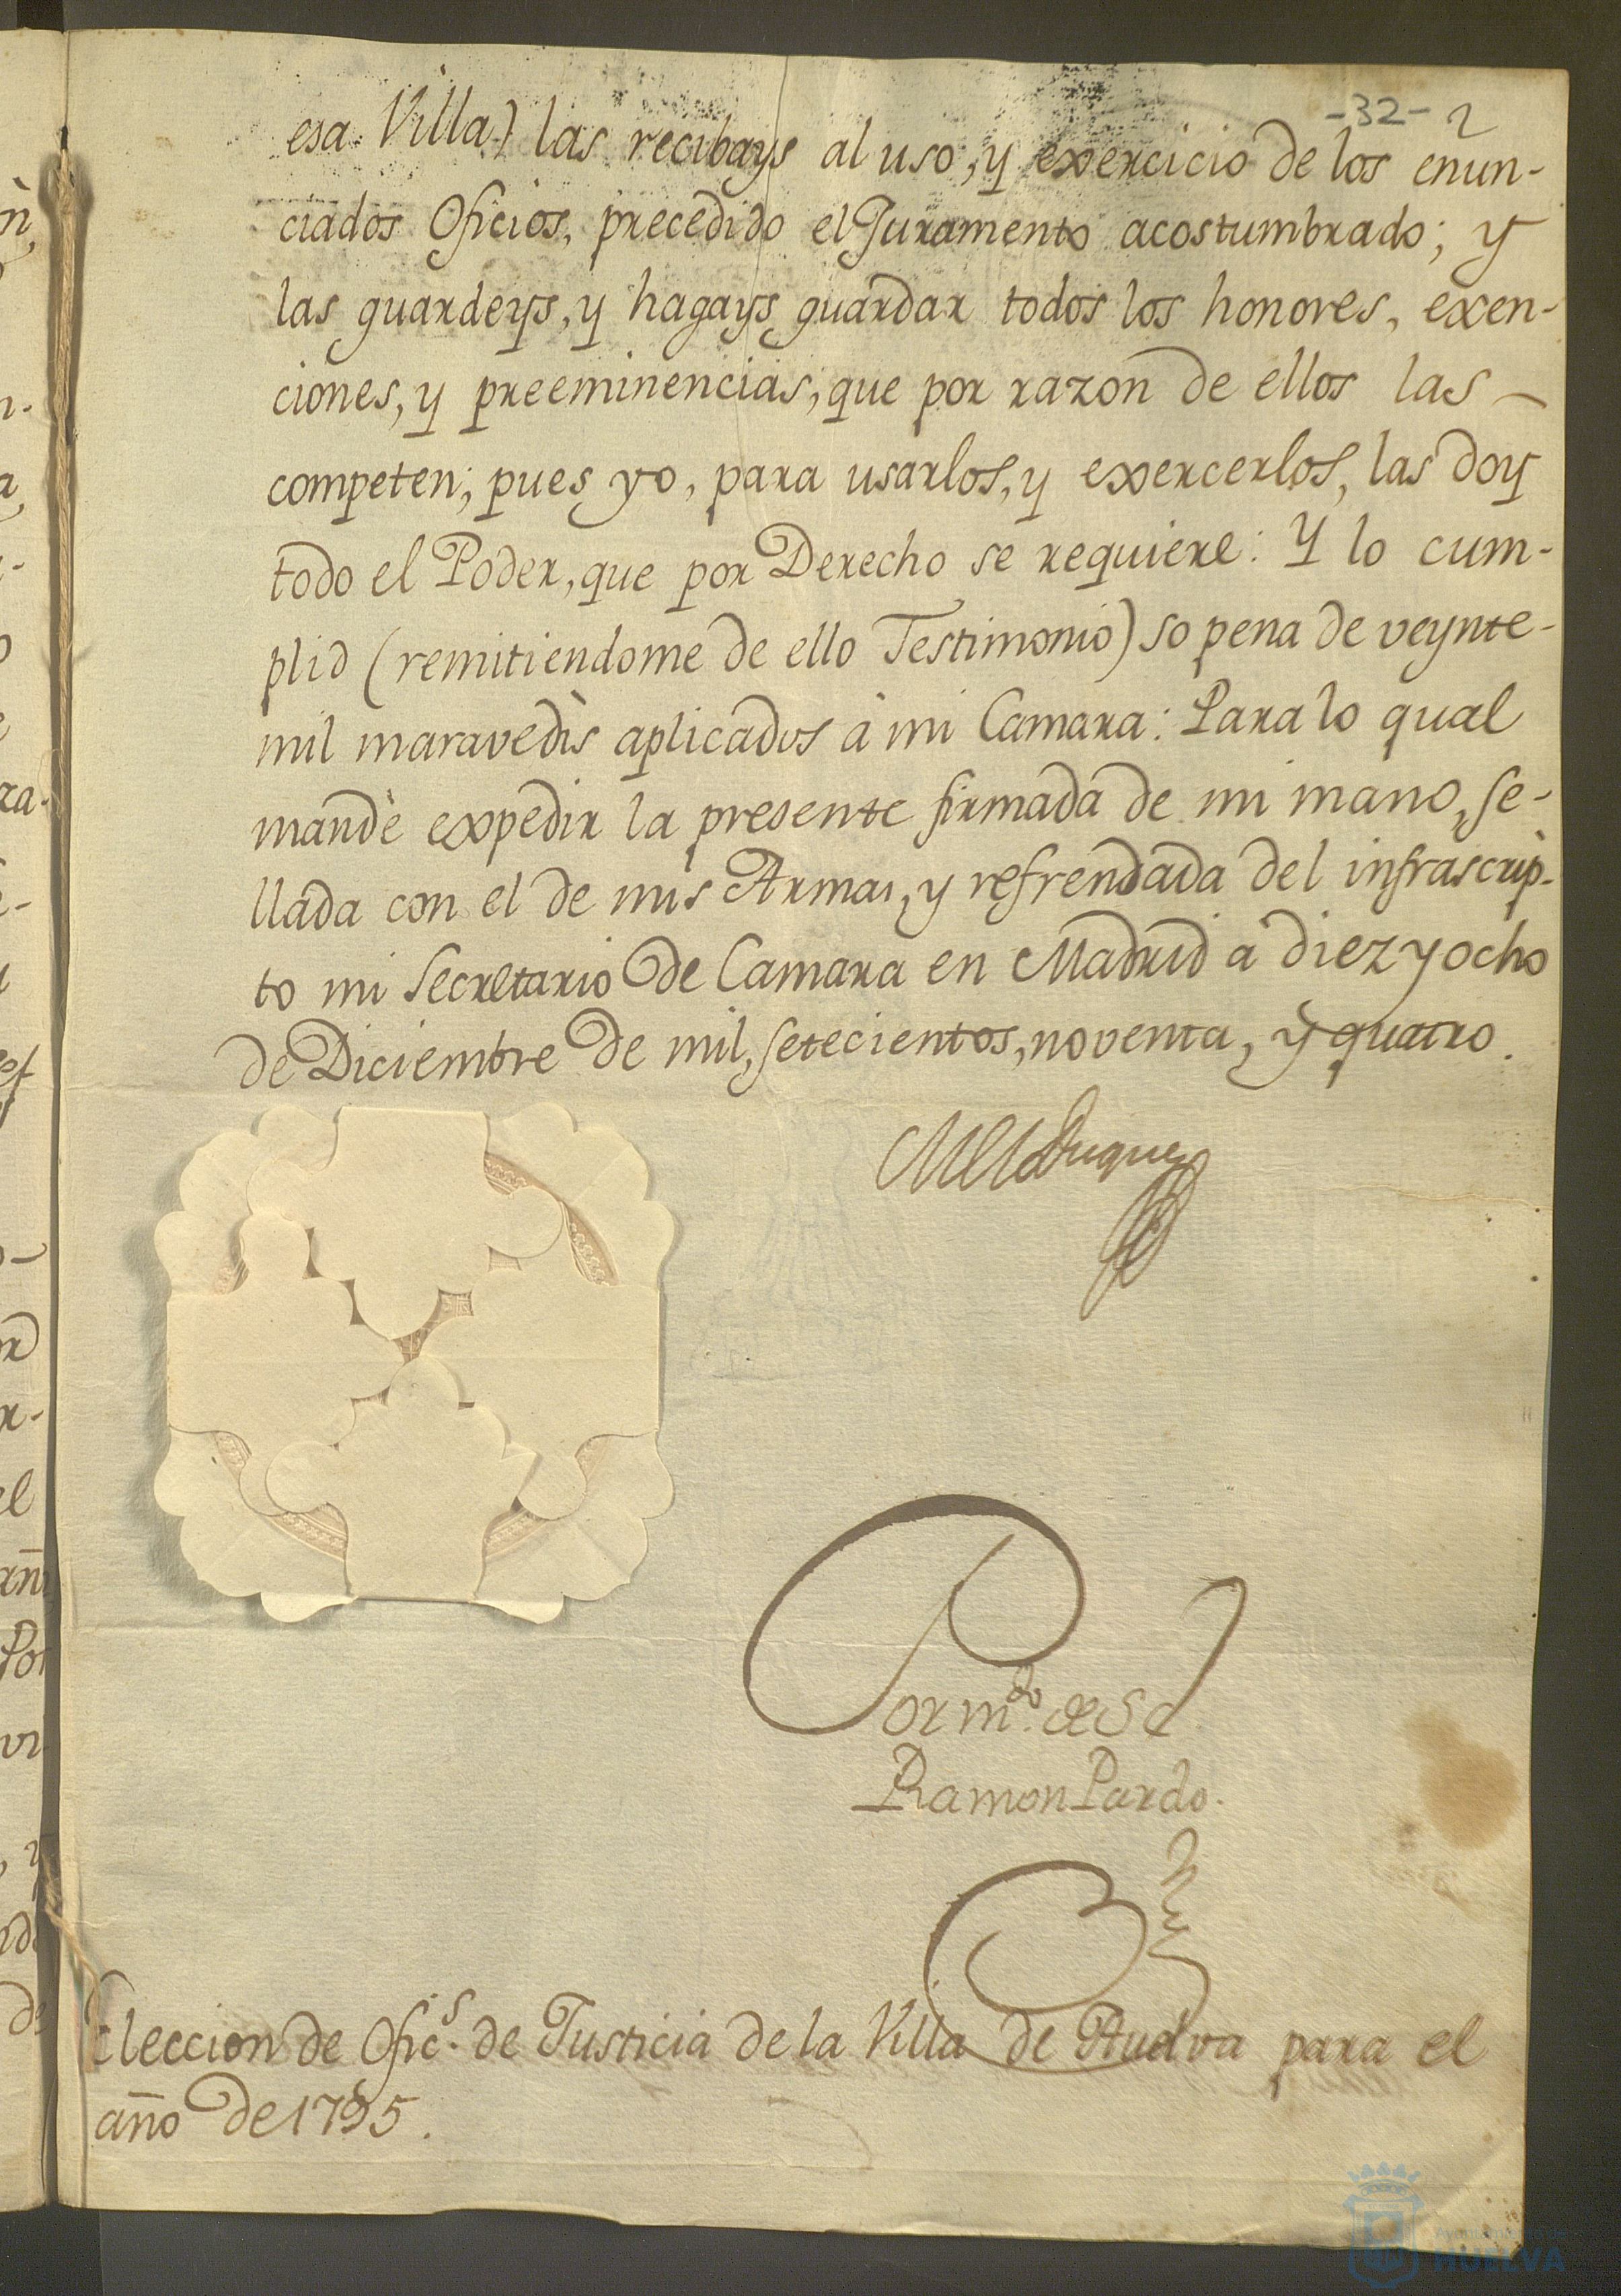 -32- 2
esa Villa) las recibays al uso, y exercicio de los enun-
ciados Oficios, precedido el Juramento acostumbrado; y
las guardeys, y hagays guardar todos los honores, exen-
ciones, y preeminencias, que por razon de ellos las
competen; pues yo, para usarlos, y exercerlos, las doy
todo el Poder, que por Derecho se requiere: Y lo cum-
plid (remitiendome de ello Testimonio) so pena de veynte
mil maravedìs aplicados à mi Camara: Para lo qual
mandè expedir la presente firmada de mi mano, se-
llada con el de mis Armas, y refrendada del infrascrip-
to mi Secretario de Camara en Madrid à diez y ocho
de Diciembre de mil, setecientos, noventa, y quatro.
Duque
Por m.do de S E
Ramon Pardo.
Eleccion de Ofic.s de Justicia de la Villa de Huelva para el
año de 1795.
HUELVA